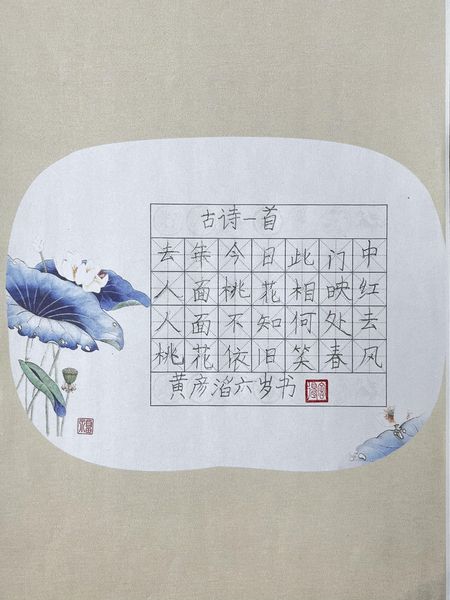 古诗一首
去年今日此门中
人面桃花相映红
人面不知何处去
桃花依旧笑春风
黄彦滔六岁书
福